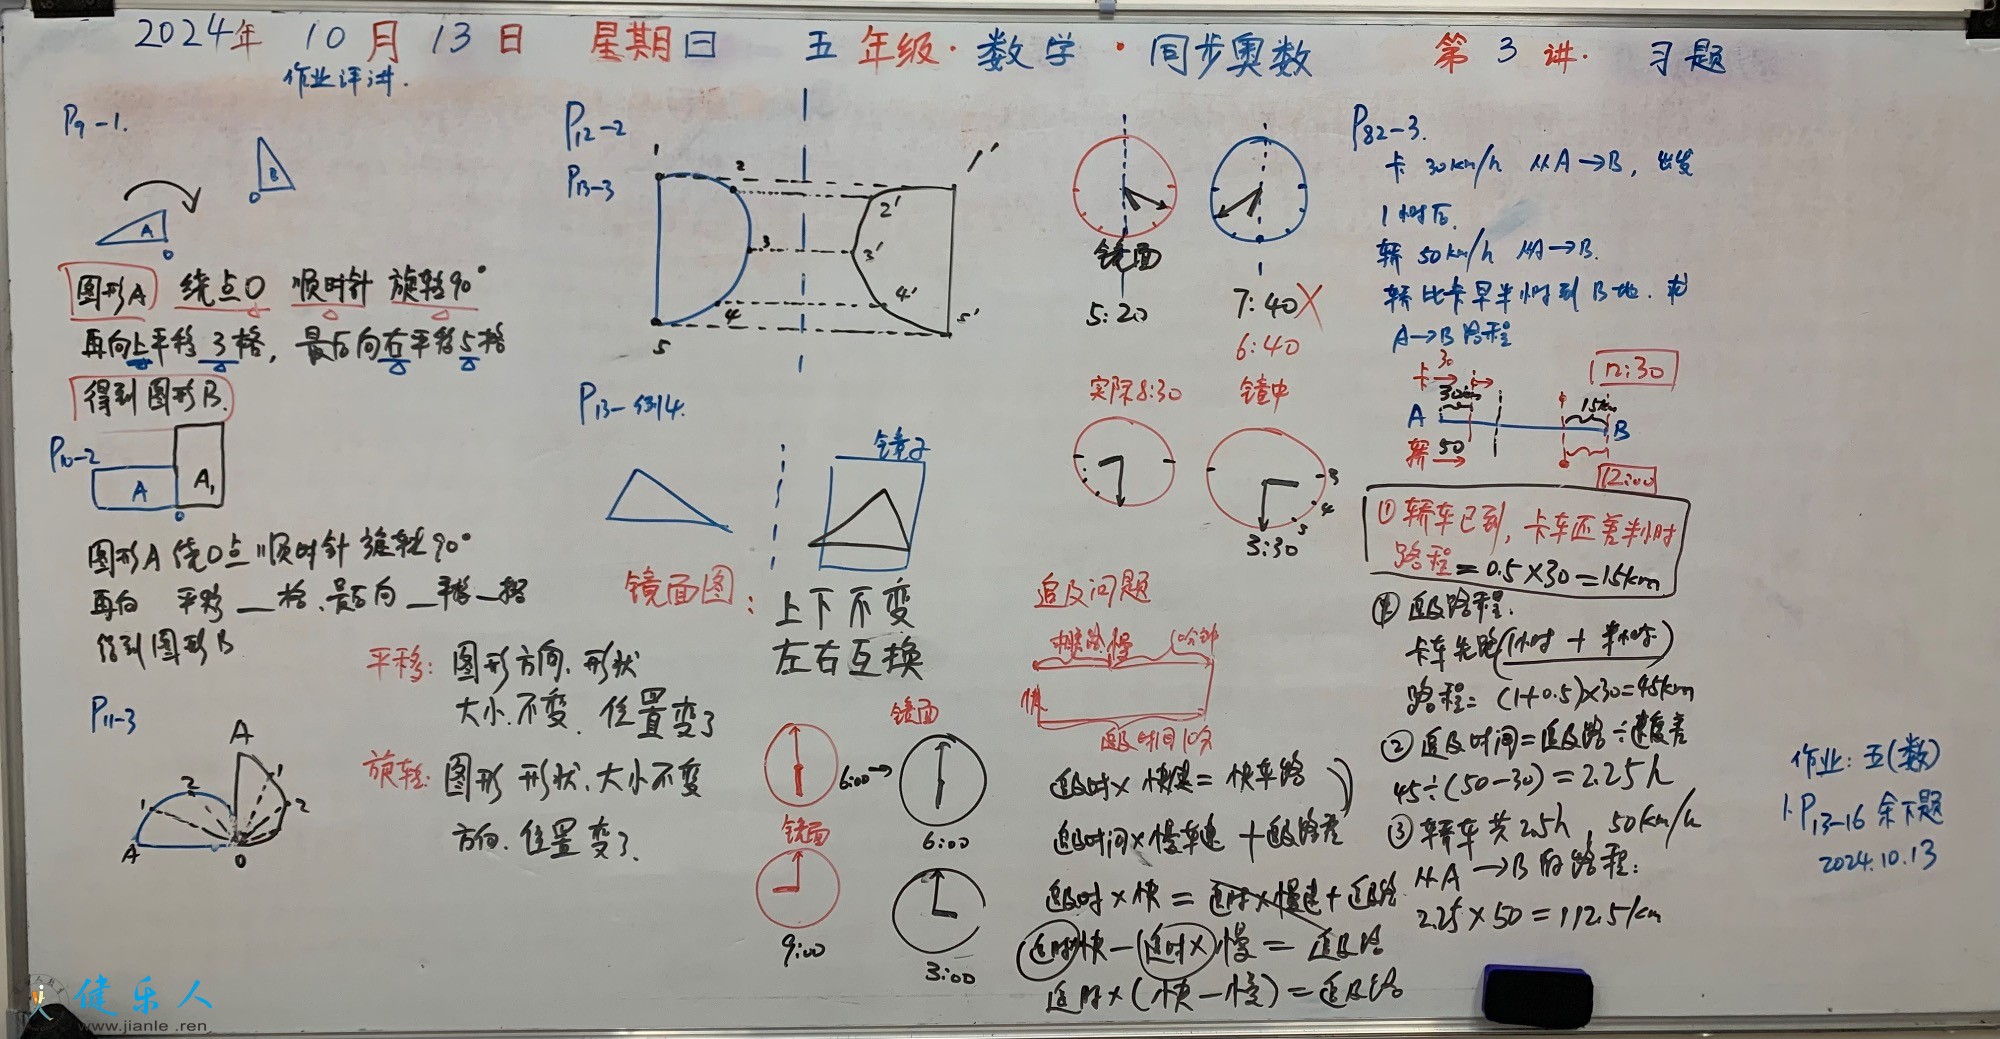 2024年 10月 13日 星期日 五年级·数学·同步奥数 第3讲· 习题
作业评讲.
P9-1.
B
O
A
O
图形A 绕点O 顺时针 旋转90°
再向上平移 3格, 最后向右平移5格
得到图形B.
P10-2
A
A1
O
图形A 绕O点 顺时针 旋转90°
再向 平移__格、最后向__平移__格
得到图形B
P11-3
A
1
2
1
2
A
O
平移: 图形方向、形状
大小、不变、位置变了
旋转: 图形 形状、大小不变
方向、位置变了.
P12-2
P13-3
1
2
3
4
5
1'
2'
3'
4'
5'
P13-例4.
镜子
镜面图:
上下不变
左右互换
镜面
6:00→
6:00
镜面
9:00
3:00
镜面
5:20
7:40X
6:40
实际8:30
镜中
3
4
5
3:30
追及问题
慢
10分钟
快
追及时间10分
追及时×快速=快车路
追及时间×慢车速+追及路差
追及时×快=追时×慢速+追及路
追时快-追时×慢=追及路
追时×(快-慢)=追及路
P82-3.
卡 30km/h 从A→B, 出发
1小时后
轿 50km/h 从A→B.
轿比卡早半小时到B地. 求
A→B路程
卡 30
12:30
30km
15km
A
B
轿 50
12:00
①轿车已到, 卡车还差半小时
路程=0.5×30=15km
①追及路程.
卡车先跑(1小时+半小时)
路程=(1+0.5)×30=45km
②追及时间=追及路÷速度差
45÷(50-30)=2.25h
③轿车共2.5h, 50km/h
从A→B的路程:
2.25×50=112.5km
作业: 五(数)
1.P13-16 余下题
2024.10.13
健乐人
www.jianle.ren